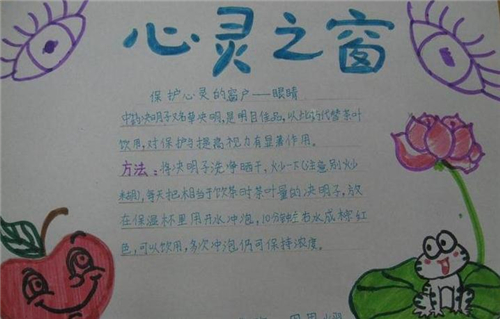 心灵之窗
保护心灵的窗户——眼睛
中药决明子又名草决明,是明目佳品,以此汤代替茶叶
饮用,对保护与提高视力有显著作用。
方法:将决明子洗净晒干,火少一下(注意别火少
糊),每天把相当于饮茶时茶叶量的决明子,放
在保温杯里用开水冲泡,10分钟左右水成棕红
色,可以饮用,多次冲泡仍可保持浓度。